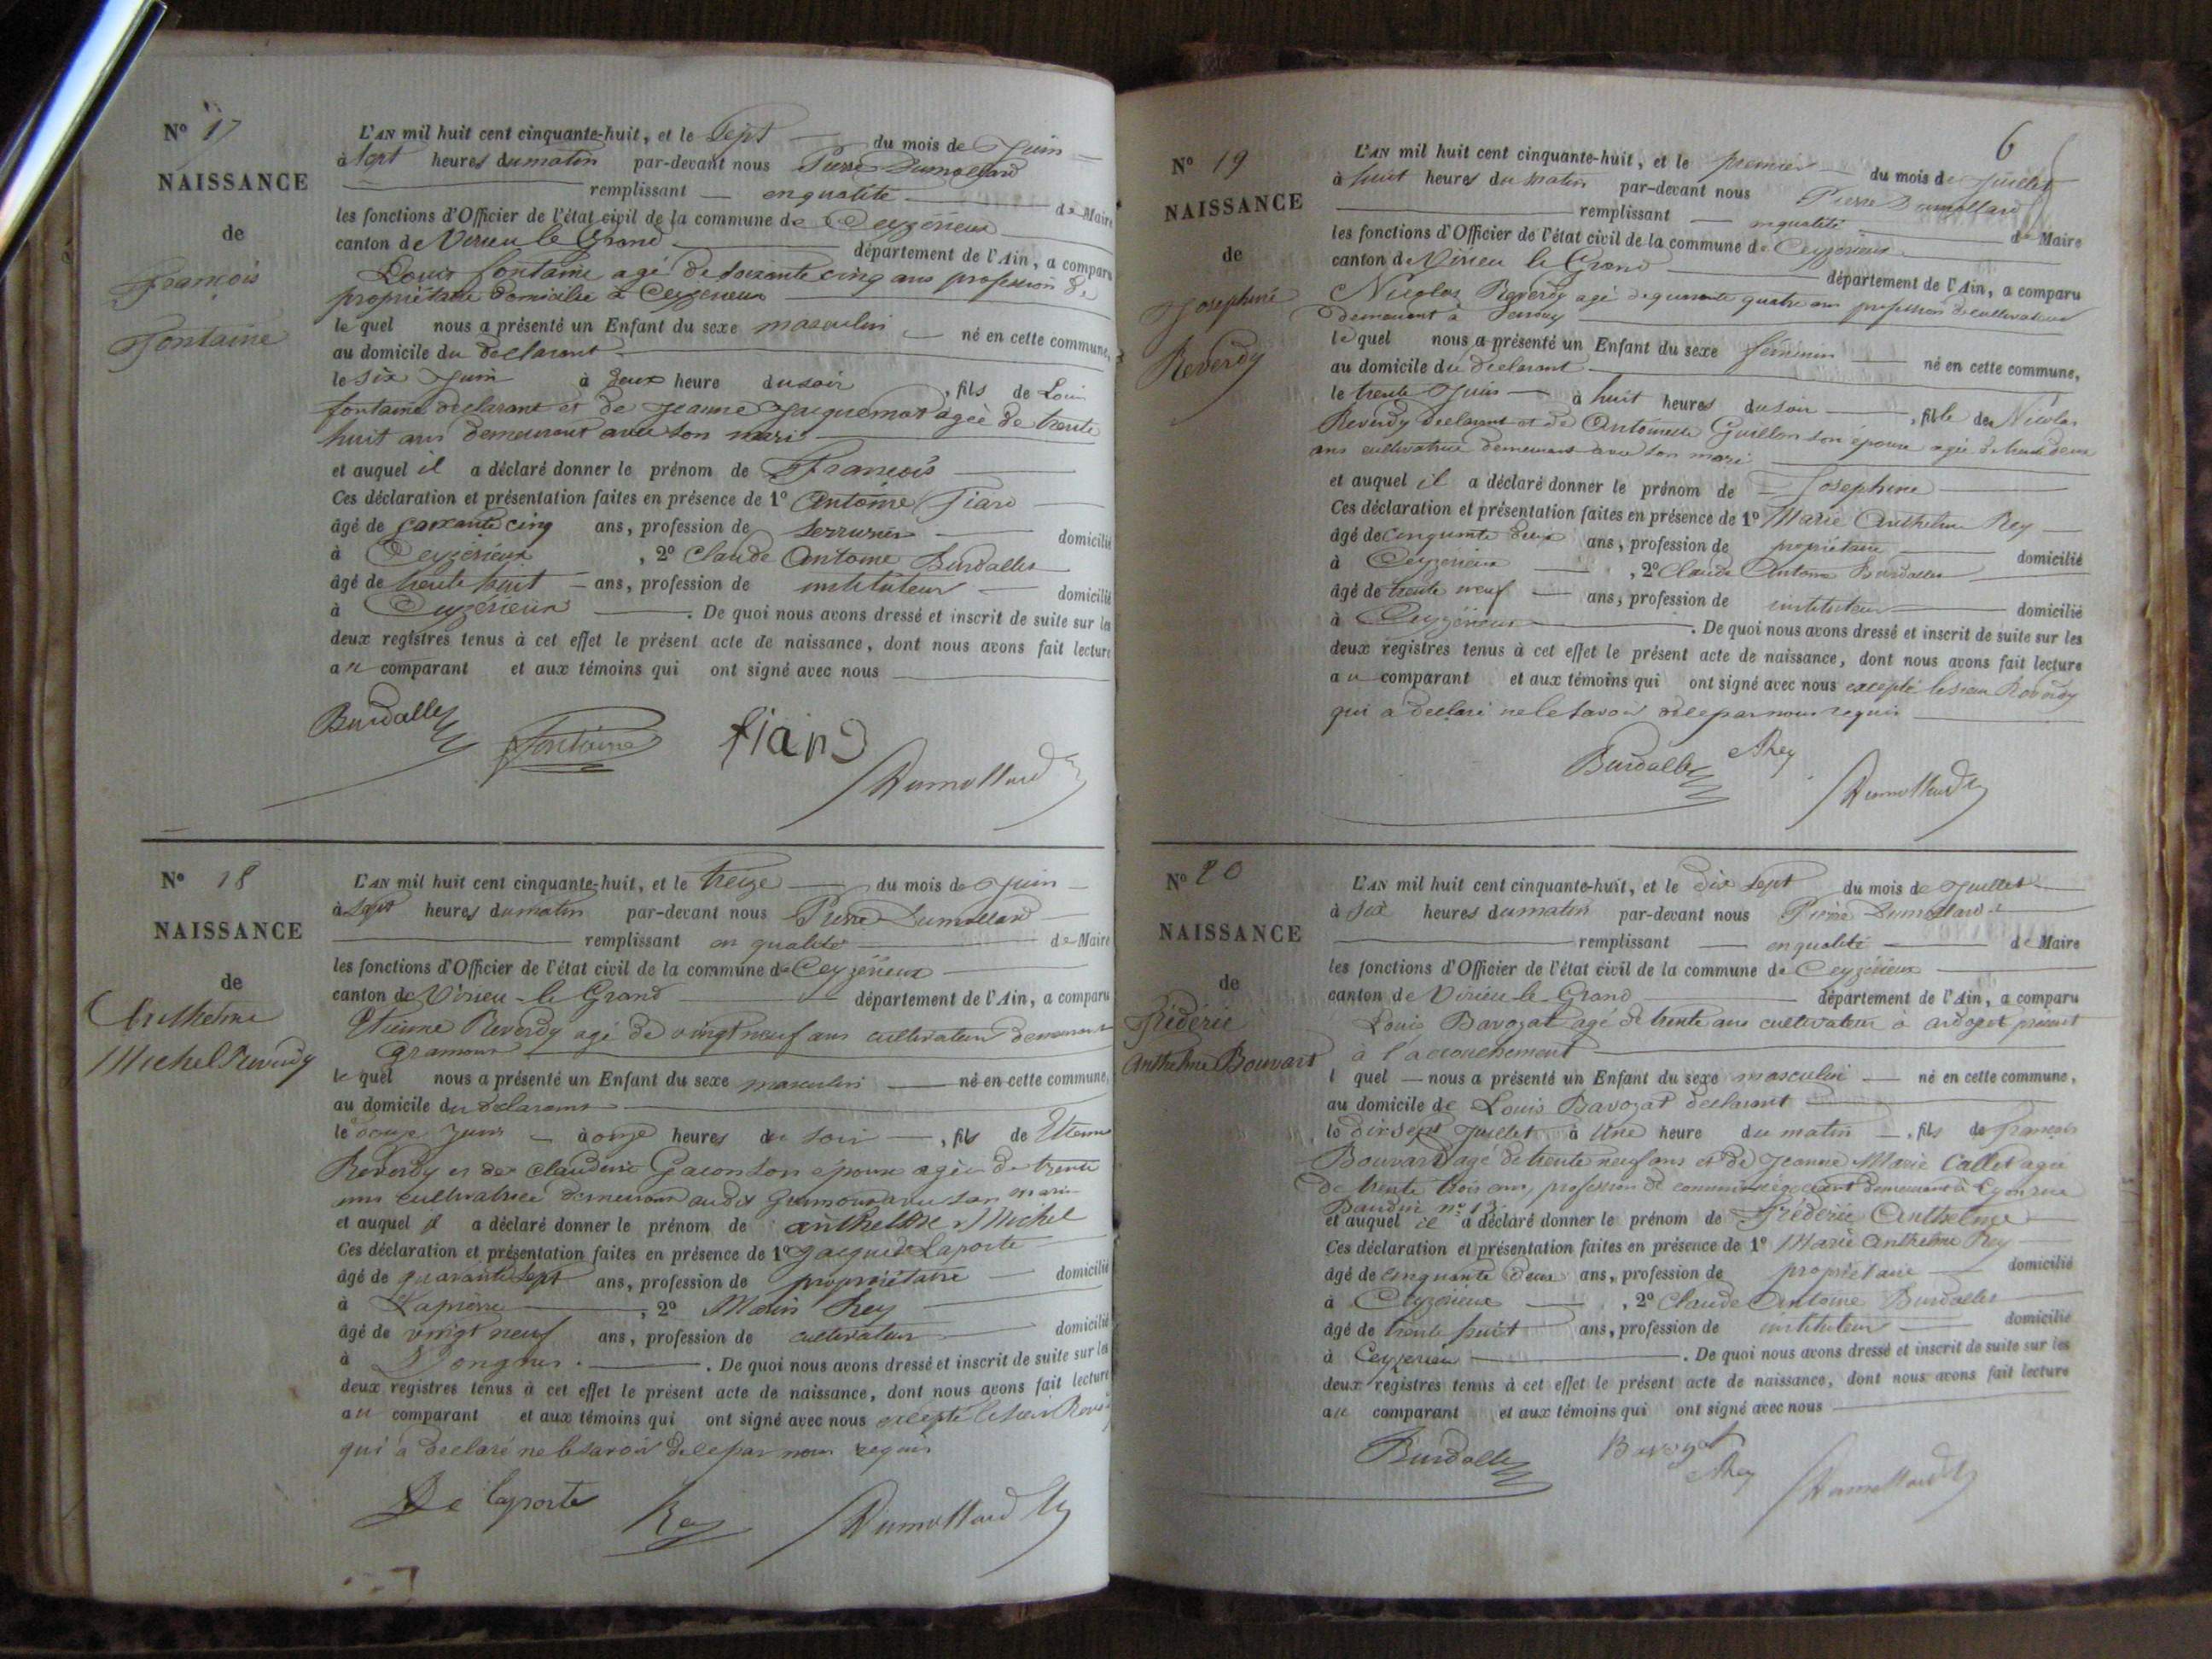 Nº 17
NAISSANCE
de
François
Fontaine
L'AN mil huit cent cinquante-huit, et le Sept du mois de Juin
à Sept heures du matin par-devant nous Pierre Dumollard
remplissant en qualité de Maire
les fonctions d'Officier de l'état civil de la commune de Ceyzérieux
canton de Virieu le Grand département de l'Ain, a comparu
Louis fontaine agé de soixante cinq ans profession de
propriétaire domicilié à Ceyzerieux
le quel nous a présenté un Enfant du sexe masculin né en cette commune,
au domicile du déclarant
le six Juin à deux heure du soir, fils de Louis
fontaine declarant et de Jeanne Jacquemet agée de trente
huit ans demeurant avec son mari
et auquel il a déclaré donner le prénom de François
Ces déclaration et présentation faites en présence de 1º Antoine
âgé de soixante cinq ans, profession de serrurier domicilié
à Ceyzérieux, 2º Claude Antoine Burdallet
âgé de trente huit ans, profession de instituteur domicilié
à Ceyzérieux. De quoi nous avons dressé et inscrit de suite sur les
deux registres tenus à cet effet le présent acte de naissance, dont nous avons fait lecture
au comparant et aux témoins qui ont signé avec nous
Burdallet Fontaine Dumollard
Nº 18
NAISSANCE
de
Anthelme
Michel Reverdy
L'AN mil huit cent cinquante-huit, et le treize du mois de Juin
à Sept heures du matin par-devant nous Pierre Dumollard
remplissant en qualité de Maire
les fonctions d'Officier de l'état civil de la commune de Ceyzérieux
canton de Virieu-le Grand département de l'Ain, a comparu
Etienne Reverdy agé de vingt neuf ans cultivateur demeurant
le quel nous a présenté un Enfant du sexe masculin né en cette commune,
au domicile du declarant
le douze Juin à onze heures du soir, fils de Etienne
Reverdy et de Claudine son épouse agée de trente
ans cultivatrice demeurant audit avec son mari
et auquel il a déclaré donner le prénom de anthelme Michel
Ces déclaration et présentation faites en présence de 1º Laporte
âgé de quarante sept ans, profession de propriétaire domicilié
à, 2º Marin Rey
âgé de vingt neuf ans, profession de cultivateur domicilié
à. De quoi nous avons dressé et inscrit de suite sur les
deux registres tenus à cet effet le présent acte de naissance, dont nous avons fait lecture
au comparant et aux témoins qui ont signé avec nous excepté le sieur
qui a declaré ne le savoir de ce par nous requis
De laporte Rey Dumollard
6
Nº 19
NAISSANCE
de
Josephine
Reverdy
L'AN mil huit cent cinquante-huit, et le premier du mois de Juillet
à huit heures du matin par-devant nous Pierre Dumollard
remplissant en qualité de Maire
les fonctions d'Officier de l'état civil de la commune de Ceyzérieux
canton de Virieu le Grand département de l'Ain, a comparu
Nicolas Reverdy agé de quarante quatre ans profession de cultivateur
demeurant à
le quel nous a présenté un Enfant du sexe féminin né en cette commune,
au domicile du déclarant
le trente Juin à huit heures du soir, fille de Nicolas
Reverdy declarant et de Antoinette Guillon son épouse agée de trente deux
ans cultivatrice demeurant avec son mari
et auquel il a déclaré donner le prénom de Josephine
Ces déclaration et présentation faites en présence de 1º Marie Anthelme Rey
âgé de cinquante deux ans, profession de propriétaire domicilié
à Ceyzérieux, 2º Claude Antoine Burdallet
âgé de trente neuf ans, profession de instituteur domicilié
à Ceyzérieux. De quoi nous avons dressé et inscrit de suite sur les
deux registres tenus à cet effet le présent acte de naissance, dont nous avons fait lecture
au comparant et aux témoins qui ont signé avec nous excepté le sieur Reverdy
qui a declaré ne le savoir de ce par nous requis
Burdallet ARey Dumollard
Nº 20
NAISSANCE
de
Fréderic
Anthelme Bouvard
L'AN mil huit cent cinquante-huit, et le dix sept du mois de Juillet
à six heures du matin par-devant nous Pierre Dumollard
remplissant en qualité de Maire
les fonctions d'Officier de l'état civil de la commune de Ceyzérieux
canton de Virieu-le-Grand département de l'Ain, a comparu
Louis Bavozat agé de trente ans cultivateur à ardosset présent
à l'accouchement
l quel nous a présenté un Enfant du sexe masculin né en cette commune,
au domicile de Louis Bavozat declarant
le dix sept Juillet à Une heure du matin, fils de françois
Bouvard agé de trente neuf ans et de Jeanne Marie Callet agée
de trente trois ans, profession de commis négociant demeurant à Lyon rue
nº 13
et auquel il a déclaré donner le prénom de Fréderic Anthelme
Ces déclaration et présentation faites en présence de 1º Marie Anthelme Rey
âgé de cinquante deux ans, profession de propriétaire domicilié
à Ceyzérieux, 2º Claude Antoine Burdallet
âgé de trente huit ans, profession de instituteur domicilié
à Ceyzerieu. De quoi nous avons dressé et inscrit de suite sur les
deux registres tenus à cet effet le présent acte de naissance, dont nous avons fait lecture
au comparant et aux témoins qui ont signé avec nous
Burdallet Bavozat ARey Dumollard